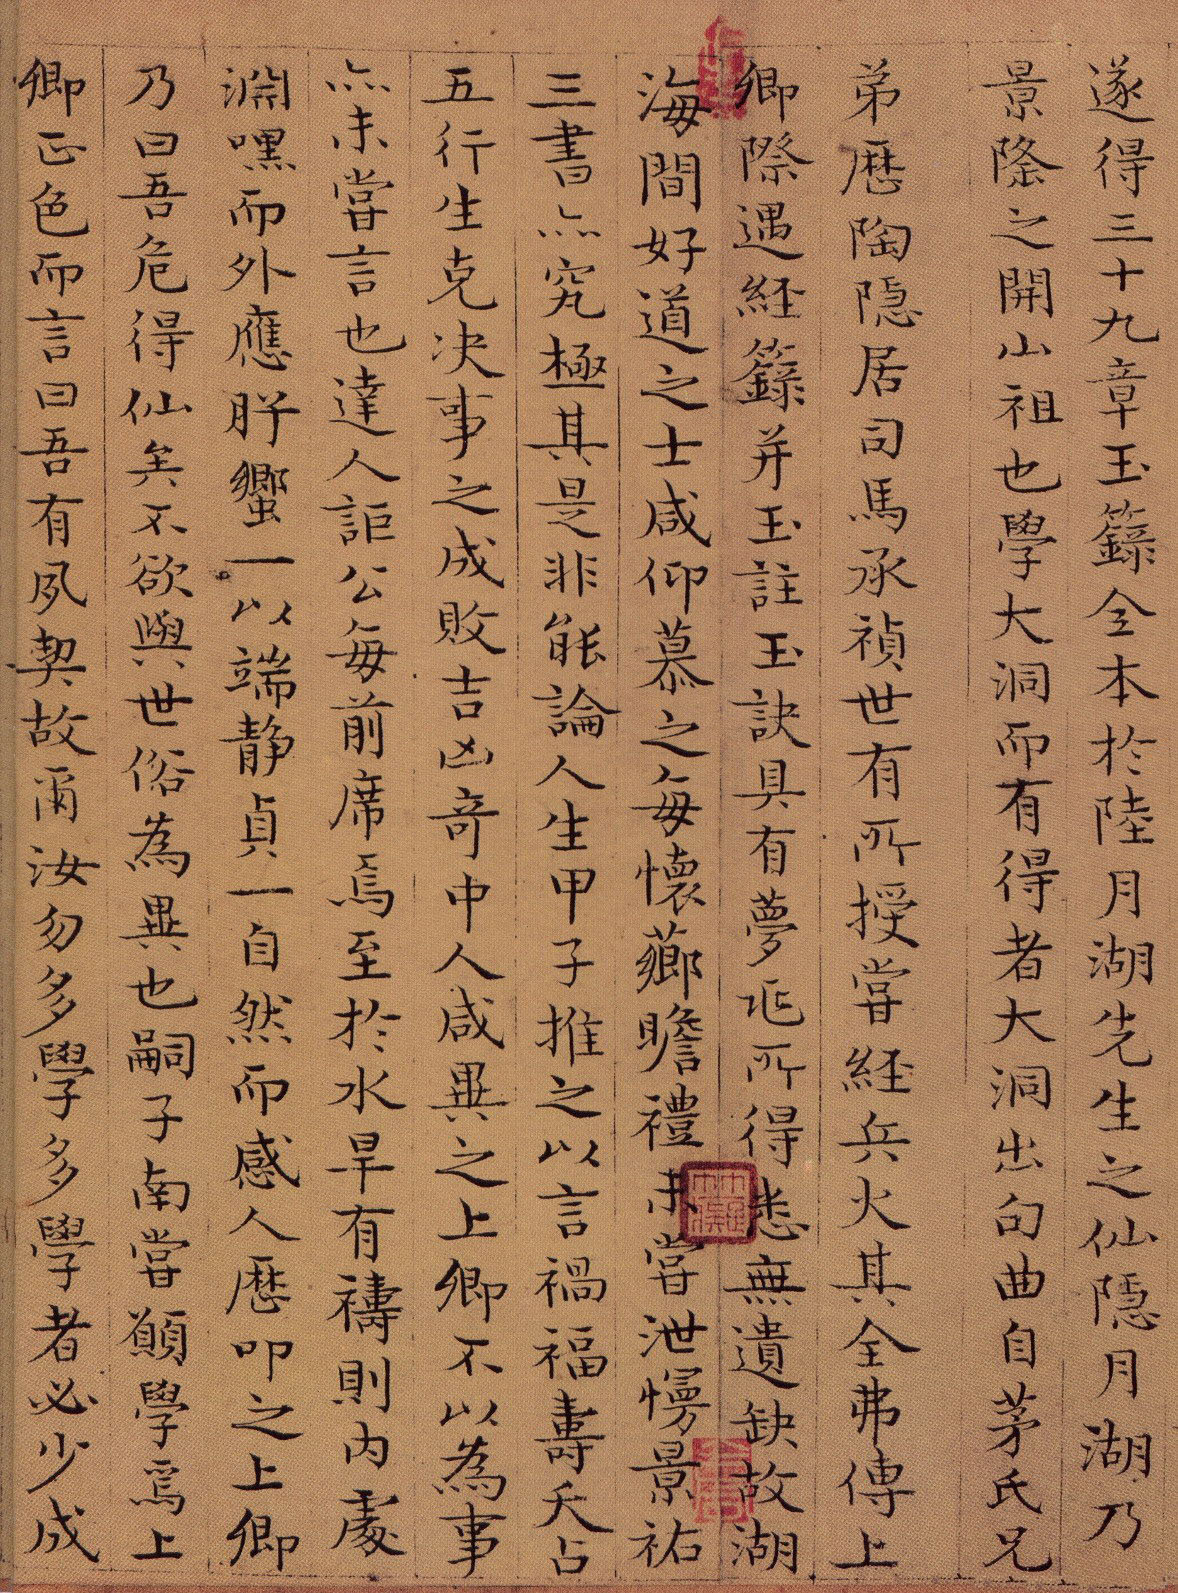 遂得三十九章玉籙全本於陸月湖先生之仙隱月湖乃
景隆之開山祖也學大洞而有得者大洞出句曲自茅氏兄
弟歷陶隱居司馬承禎世有所授嘗経兵火其全弗傳上
卿際遇経籙并玉註玉訣具有夢亦所得悉無遺缺故湖
海間好道之士咸仰慕之每懷薌瞻禮未嘗泄慢景祐
三書亦究極其是非能論人生甲子推之以言禍福壽夭占
五行生克决事之成敗吉凶奇中人咸異之上卿不以為事
亦未嘗言也達人詎公每前席焉至於水旱有禱則內處
淵嘿而外應肸蠁一以端静貞一自然而感人歷叩之上卿
乃曰吾危得仙矣不欲與世俗為異也嗣子南嘗願學焉上
卿正色而言曰吾有夙契故爾汝勿多學多學者必少成